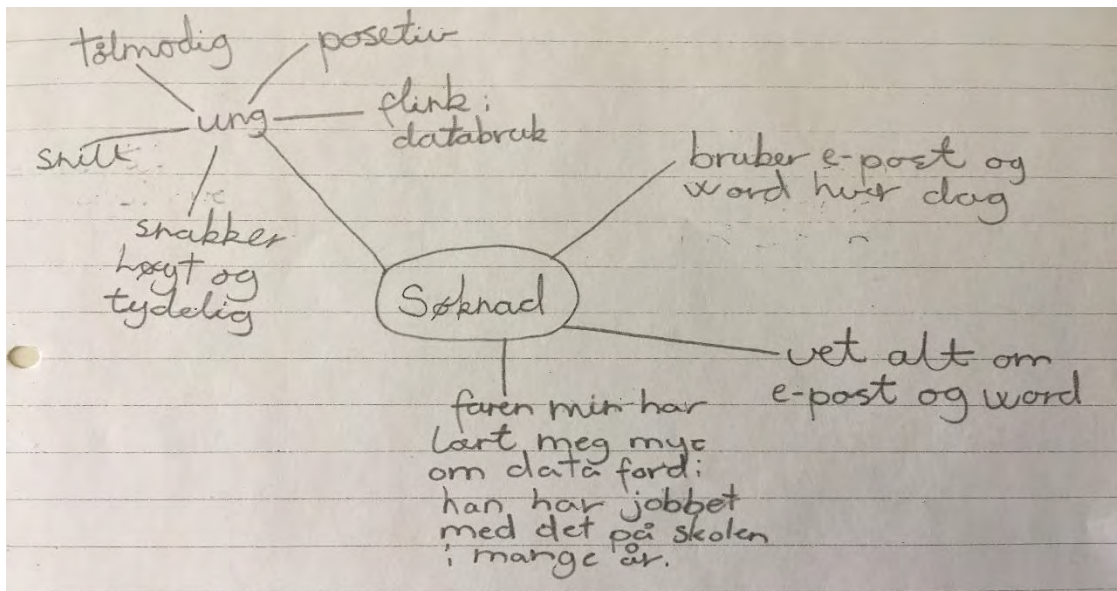 tålmodig
posetiv
ung
flink i
databruk
snill
snakker
høyt og
tydelig
bruker e-post og
word hver dag
Søknad
vet alt om
e-post og word
faren min har
lært meg mye
om data fordi
han har jobbet
med det på skolen
i mange år.